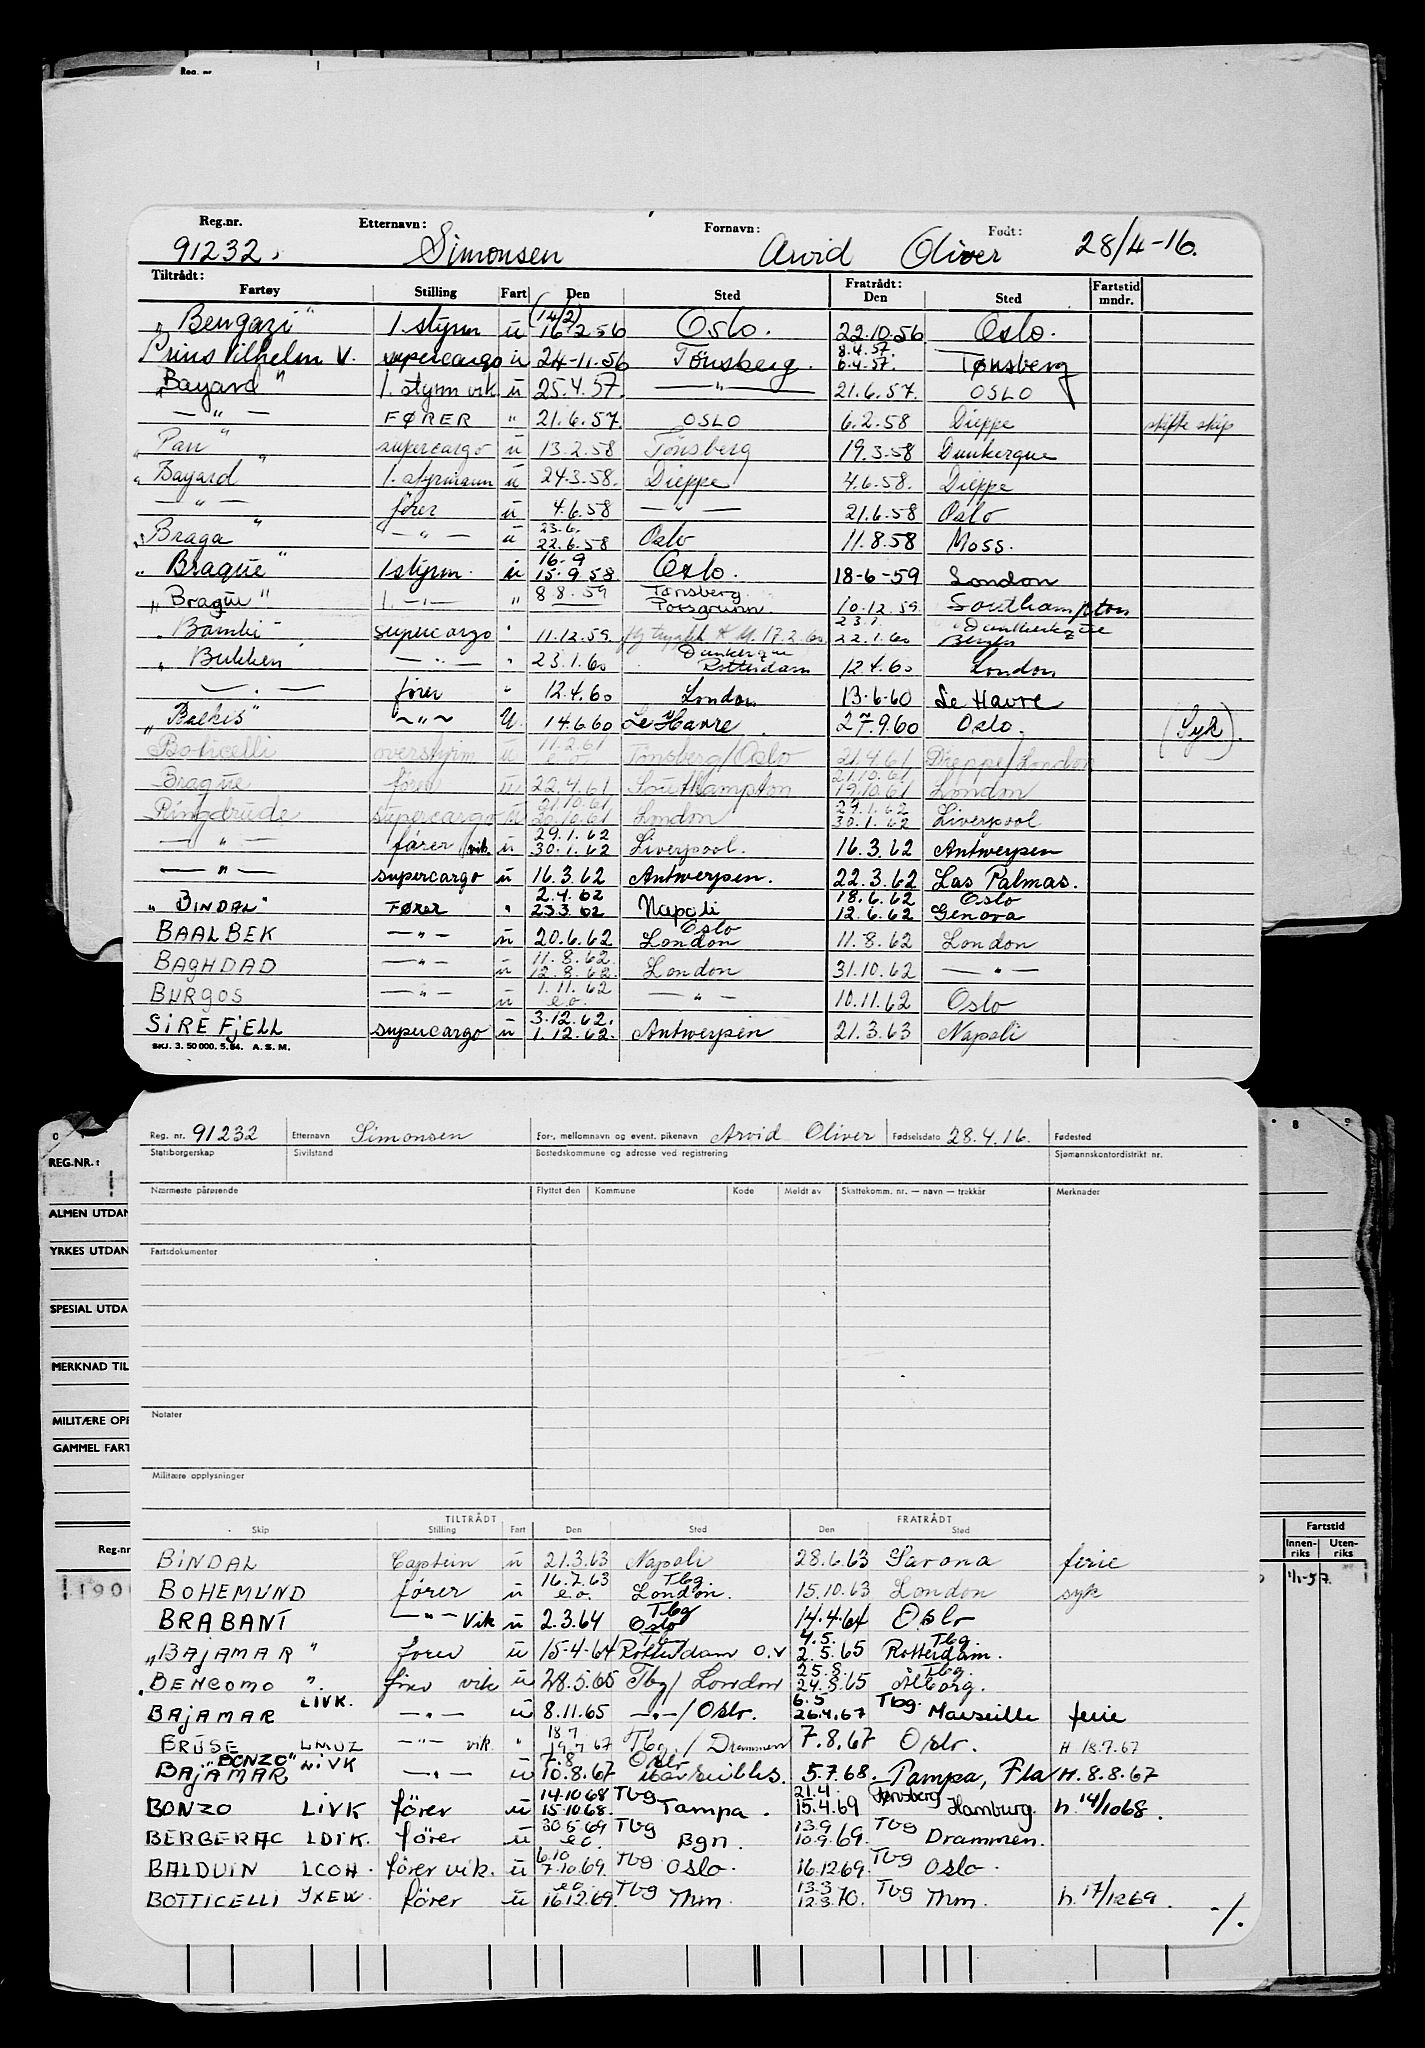 Reg. nr.
Reg.nr. Etternavn: Fornavn: Født:
91232. Simonsen Arvid Oliver 28/4-16.
Tiltrådt: Fratrådt: Fartstid
Fartøy Stilling Fart Den Sted Den Sted mndr.
(14/2)
„Bengazi" 1 styrm u 16-2.56 Oslo. 22.10.56 Oslo.
8.4.57.
Prins Vilhelm V. supercargo u 24-11.56 Tönsberg. 6.4.57. Tønsberg
„Bayard" 1. styrm vik u 25.4.57. — " — 21.6.57. OSLO
— " — FØRER " 21.6.57. OSLO 6.2.58 Dieppe skifte skip
„Pan" supercargo u 13.2.58 Tönsberg 19.3.58 Dunkerque
„Bayard" 1. styrmann u 24.3.58. Dieppe 4.6.58. Dieppe
— " — fører u 4.6.58 — " — 21.6.58 Oslo
23.6.
„Braga" — " — u 22.6.58 Oslo 11.8.58 Moss.
16-9
„Braque" 1 styrm. u 15.9.58 Oslo. 18-6-59 London
Tønsberg
„Braque" 1. — " — " 8.8.59 Porsgrunn. 10.12.59 Southampton
23.1. Dunkerque
„Bambi" supercargo " 11.12.59. 17.2.60 22.1.60
Dunkerque
„Bukken" — " — " 23.1.60 Rotterdam 12.4.60 London
— " — fører " 12.4.60 London 13-6-60 Le Havre
„Balkis" — " — U. 14.6.60 Le Havre 27.9.60 Oslo. (Syk).
11.2.61
Boticelli overstyrm u e.o. Tönsberg/Oslo 21.4.61 Dieppe/London
21.10.61
Braque fører u 22.4.61 Southampton 19.10.61 London
21.10.61 29.1.62
Ringdrude supercargo u 20.10.61 London 30.1.62 Liverpool
29.1.62
— " — fører vik. u 30.1.62 Liverpool. 16.3.62 Antwerpen
— " — supercargo u 16.3.62 Antwerpen. 22.3.62 Las Palmas.
2.4.62 18.6.62 Oslo
„BINDAL" FØRER " 23.3.62 Napoli 12.6.62 Genova
Oslo
BAALBEK — " — u 20.6.62 London 11.8.62 London
11.8.62
BAGHDAD — " — u 12.8.62. London 31.10.62 — " —
1.11.62
BURGOS — " — u e.o. — " — 10.11.62 Oslo
3.12.62.
SIREFJELL supercargo u 1.12.62. Antwerpen 21.3.63 Napoli
SKJ. 3. 50 000. 5. 54. A. S. M.
Reg. nr. 91232 Etternavn Simonsen For-, mellomnavn og event. pikenavn Arvid Oliver Fødselsdato 28.4.16. Fødested
Statsborgerskap Sivilstand Bostedskommune og adresse ved registrering Sjømannskontordistrikt nr.
REG.NR.:
Nærmeste pårørende Flyttet den Kommune Kode Meldt av Skattekomm. nr. — navn — trekkår Merknader
ALMEN UTDAN
YRKES UTDAN
Fartsdokumenter
SPESIAL UTDA
MERKNAD TIL
Notater
MILITÆRE OPP
GAMMEL FART
Militære opplysninger
TILTRÅDT FRATRÅDT
Skip Stilling Fart Den Sted Den Sted
Fartstid
Innenriks Utenriks
Reg.nr
1/1-57
BINDAL Captein u 21.3.63 Napoli 28.6.63 Savona ferie
16.7.63 Tbg
BOHEMUND fører u e.o. London. 15.10.63 London syk
Tbg
BRABANT — " — Vik u 2.3.64 Oslo 14.4.64 Oslo
4.5. Tbg
„BAJAMAR" fører u 15-4-64 Rotterdam o.v 2.5.65 Rotterdam.
25.8. Tbg.
„BENCOMO" fører vik u 28.5.65 Tbg/London 24.8.65 Ålborg.
LIVK. 6.5 Tbg.
BAJAMAR — " — u 8.11.65 — " — /Oslo. 26.4.67 Marseille ferie
18.7
BRUSE LMUZ — " — vik. " 19.7.67 Tbg./Drammen 7.8.67 Oslo. H 18.7.67
"BONZO" 7.8 Oslo
BAJAMAR LIVK — " — u 10.8.67 Marseilles. 5.7.68. Tampa, Fla H. 8.8.67
14.10.68 Tbg 21.4. Tønsberg
BONZO LIVK fører u 15.10.68. Tampa. 15.4.69 Hamburg. h. 14/10 68.
30.5.69 Tbg 13.9 Tbg
BERBERAC LDIK. fører u e.o. Bgn. 10.9.69. Drammen.
6.10 Tbg Tbg
BALDUIN LCOH. fører vik. u 7.10.69. Oslo. 16.12.69. Oslo.
e.o. Tbg 13.3 Tbg
BOTTICELLI JXEW. fører u 16.12.69. Thm. 12.3.70. Thm. h. 17/12 69.
-/.